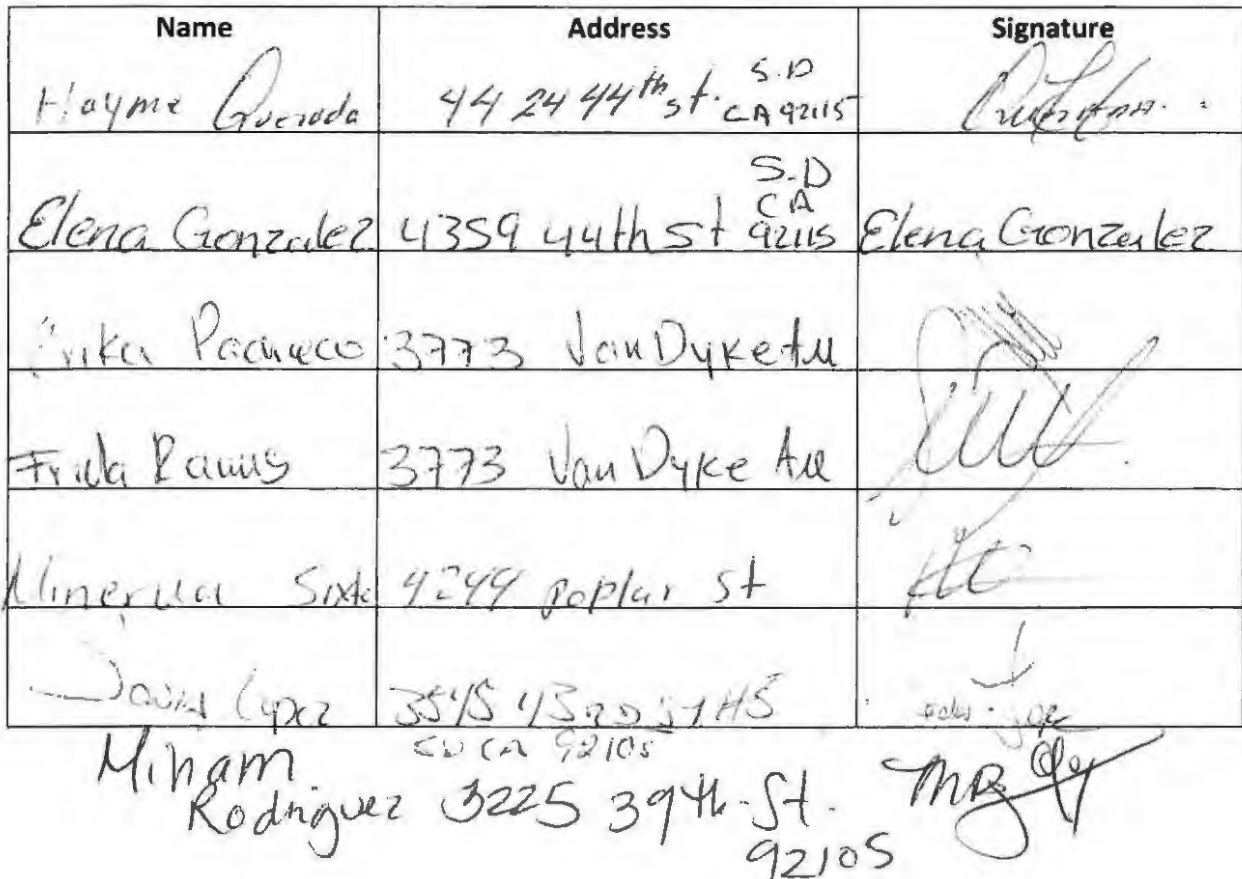 Name Address Signature
Hayme Quezada 4424 44th st. S.D
CA 92115
Elena Gonzalez 4359 44th St S.D
CA
92115 Elena Gonzalez
Erika Pacheco 3773 Van Dyke Ave
Frida Ramos 3773 Van Dyke Ave
Minerva Sixto 4244 poplar st
Lopez 3545 43RD ST #5
SD CA 92105
Miriam
Rodriguez 3225 39th St.
92105